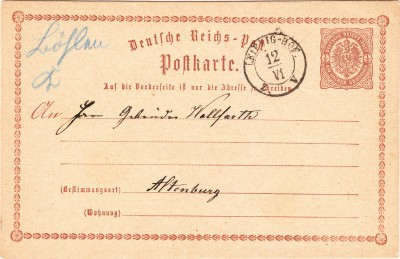 Böhlen
Deutsche Reichs-Post
Postkarte.
LEIPZIG-HOF
12
VI
Auf die Vorderseite ist nur die Adresse zu schreiben
An Herrn Gebrüder Wallfarth
(Bestimmungsort) Altenburg
(Wohnung)